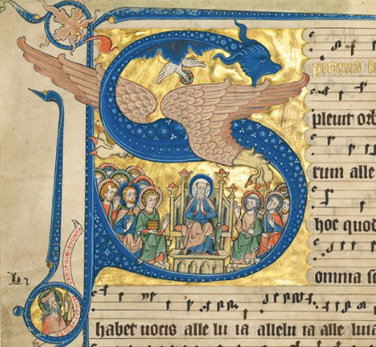 pleuit orb
rum alle
hoc quod
omnia sc
habet uocis alle lu ia allelu ia alle luia